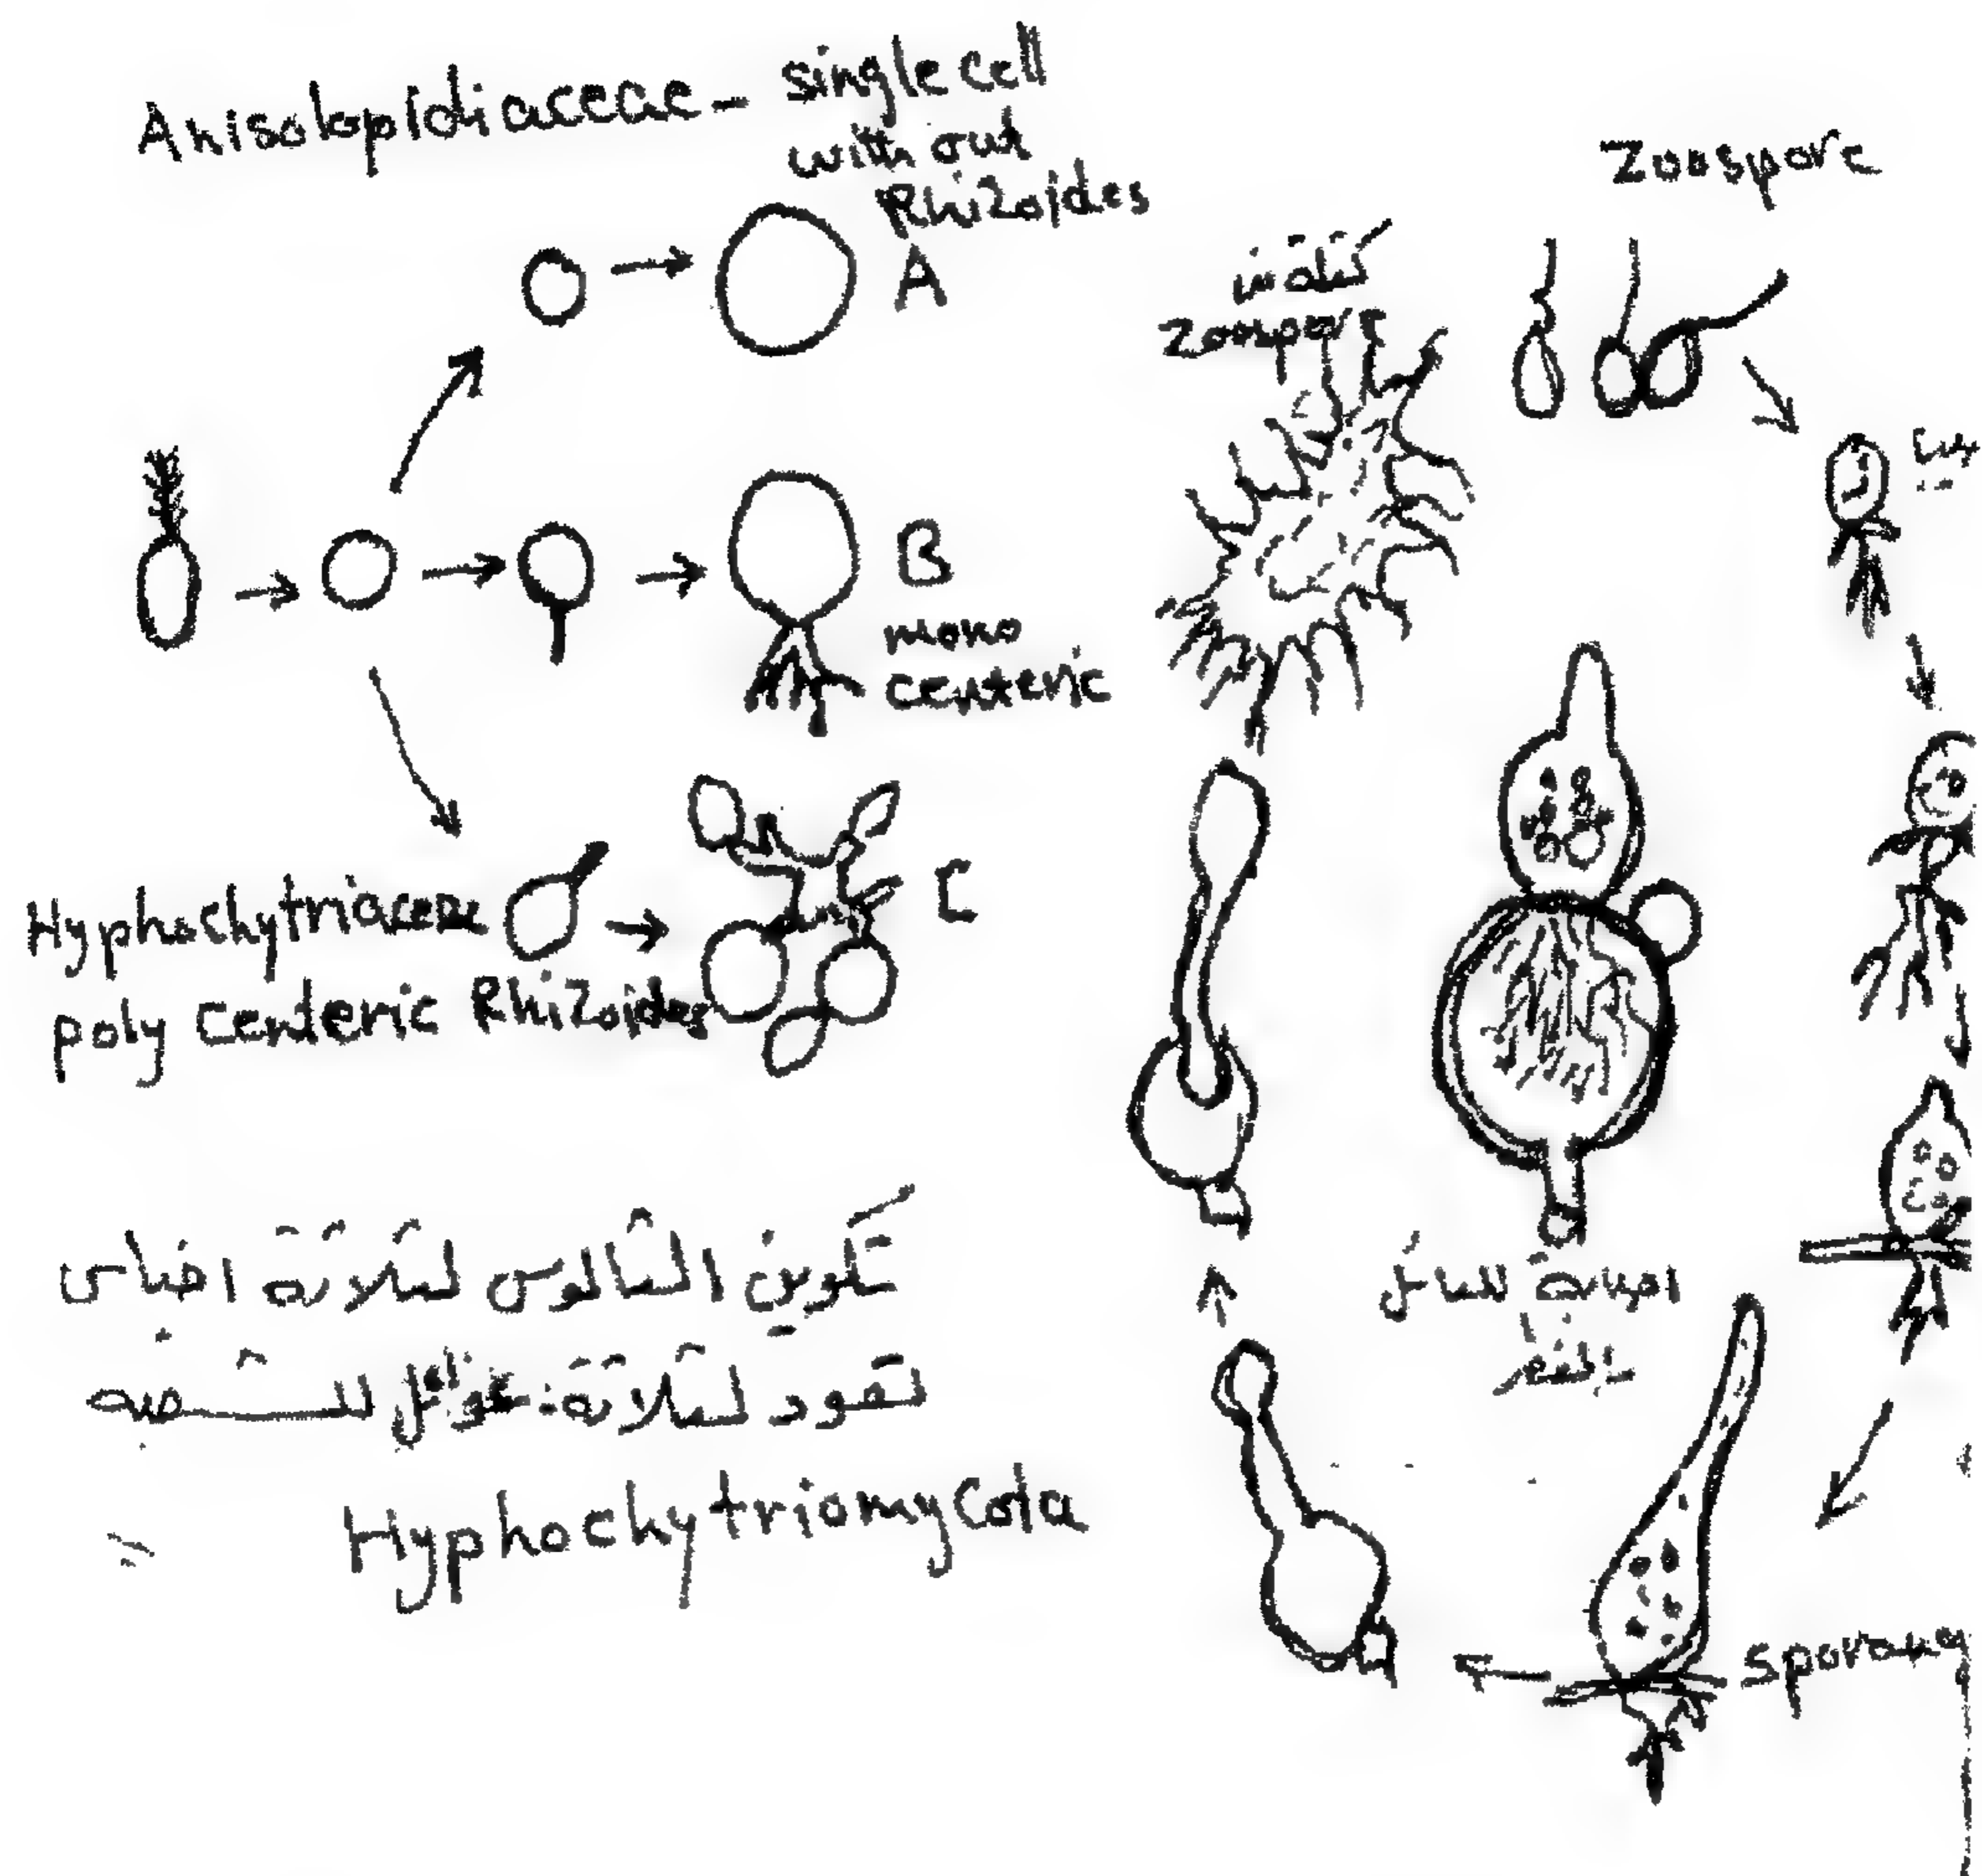 Anisolopidiaceae - single cell
with out
Rhizoides
A
B
mono
centeric
Hyphochytriaceae
C
poly centeric Rhizoides
تكوين الثالوس لثلاثة
تقود لثلاثة عوائل للشعبه
Hyphochytriomycota
Zoospore
كتلة من
zoospore
اصابة للعائل